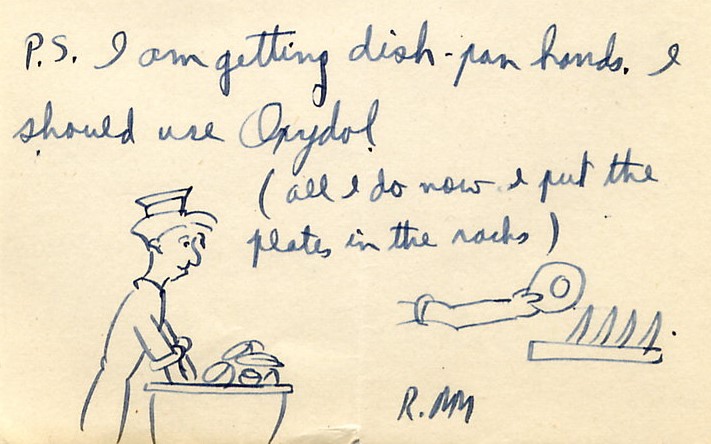 P.S. I am getting dish-pan hands. I
should use Oxydol
(all I do now is put the
plates in the racks)
R.MM